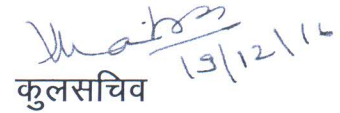 19/12/16
कुलसचिव